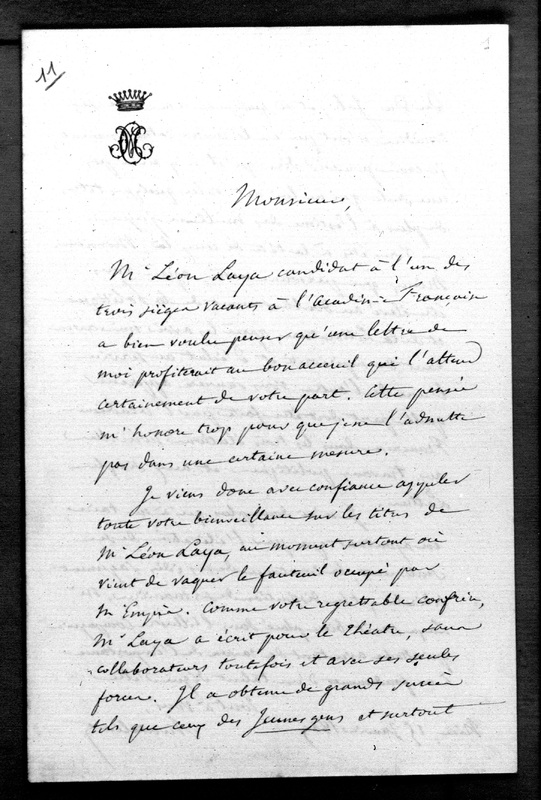 11
1
Monsieur,
Mr Léon Laya candidat à l'un des
trois sièges vacants à l'Académie Française
a bien voulu penser qu'une lettre de
moi profiterait au bon accueil qui l'attend
certainement de votre part. Cette pensée
m'honore trop pour que je ne l'admette
pas dans une certaine mesure.
Je viens donc avec confiance appeler
toute votre bienveillance sur les titres de
Mr Léon Laya, au moment surtout où
vient de vaquer le fauteuil occupé par
Mr Empis. Comme votre regrettable confrère,
Mr Laya a écrit pour le théâtre, sans
collaborateurs toutefois et avec ses seules
forces. Il a obtenu de grands succès
tels que ceux des Jeunes gens et surtout